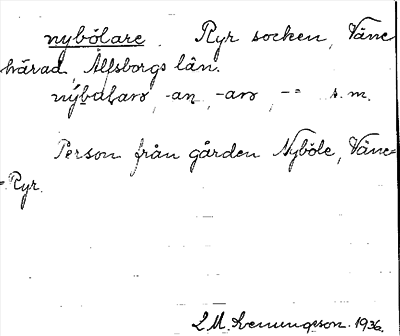 nybölare. Ryr socken, Väne
härad, Älfsborgs län.
-an, s. m.
Person från gården Nyböle, Väne=
=Ryr.
1936.